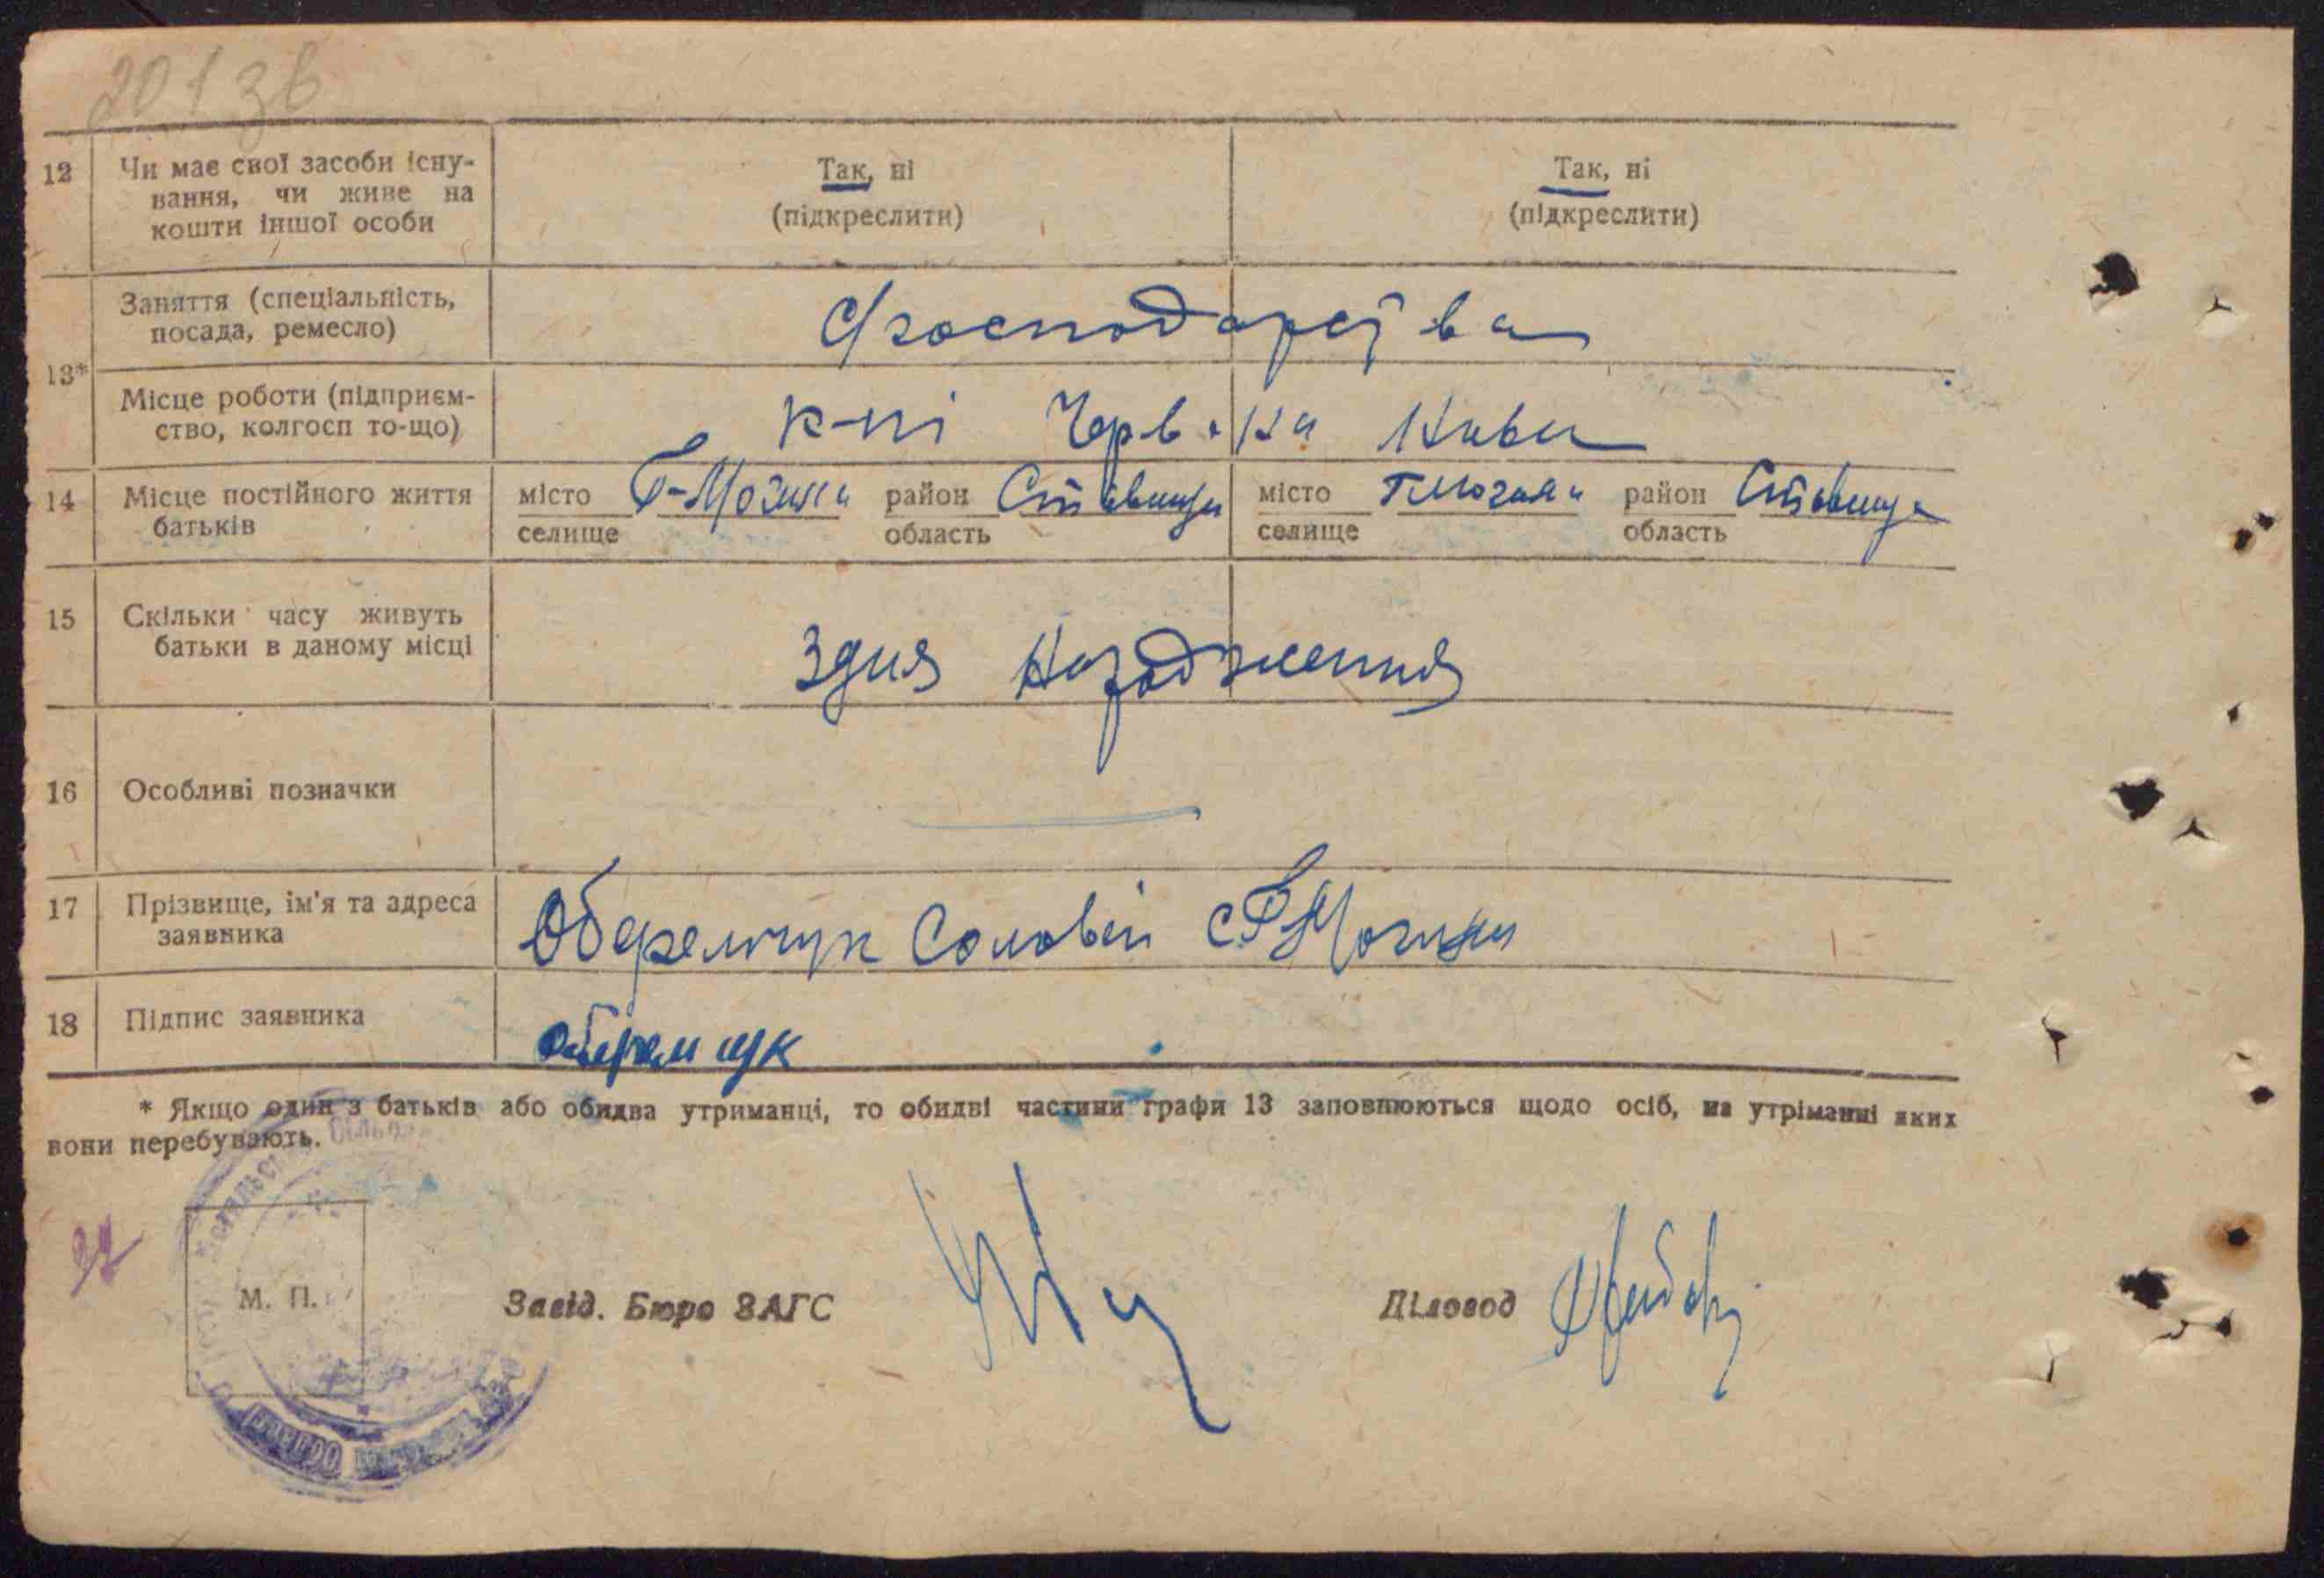 201зв
12 Чи має свої засоби існу- Так, ні Так, ні
вання, чи живе на (підкреслити) (підкреслити)
кошти іншої особи
13* Заняття (спеціальність, С/господарства
посада, ремесло)
Місце роботи (підприєм- к-пі Черв. Нива
ство, колгосп то-що)
14 Місце постійного життя місто Г-Могила район Ставище місто Г Могила район Ставище
батьків селище область селище область
15 Скільки часу живуть
батьки в даному місці здня народження
16 Особливі позначки
17 Прізвище, ім'я та адреса Оберемчук Соловей с Г Могили
заявника
18 Підпис заявника Оберемчук
* Якщо один з батьків або обидва утриманці, то обидві частини графи 13 заповнюються щодо осіб, на утріманні яких
вони перебувають.
М. П. Завід. Бюро ЗАГС Діловод